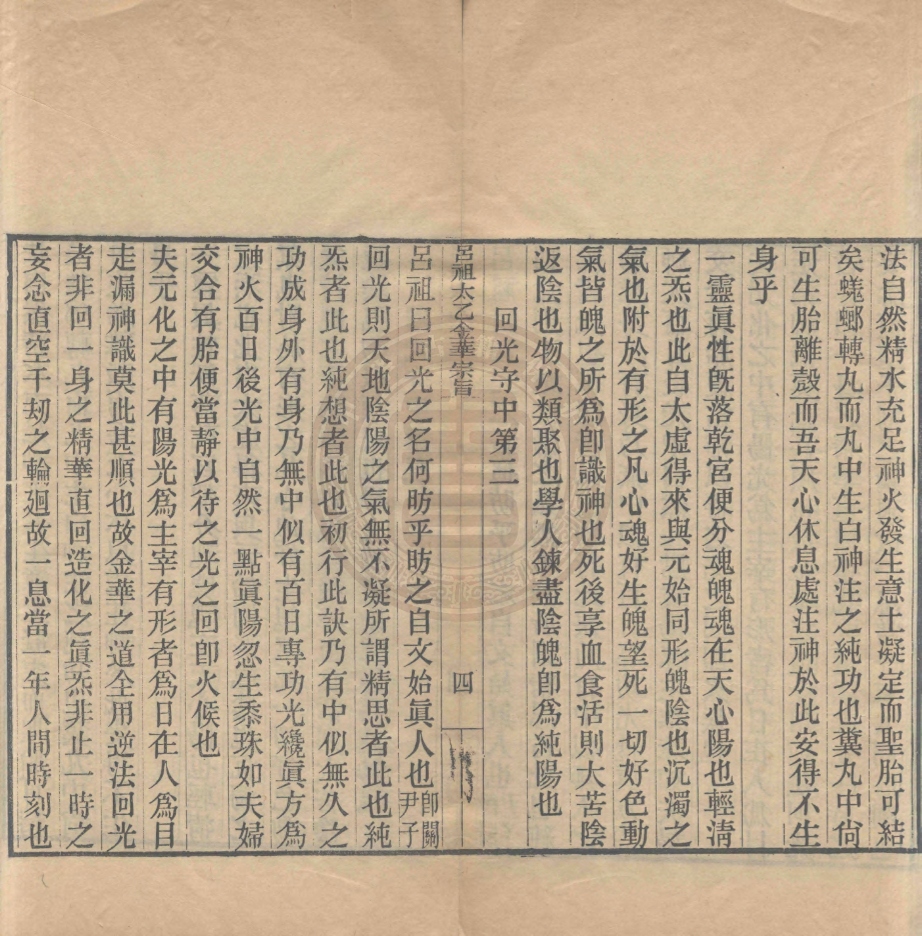 法自然精水充足神火發生意土凝定而聖胎可結
矣蜣螂轉丸而丸中生白神注之純功也糞丸中尙
可生胎離殼而吾天心休息處注神於此安得不生
身乎
一靈眞性旣落乾宮便分魂魄魂在天心陽也輕淸
之炁也此自太虛得來與元始同形魄陰也沉濁之
氣也附於有形之凡心魂好生魄望死一切好色動
氣皆魄之所爲卽識神也死後享血食活則大苦陰
返陰也物以類聚也學人鍊盡陰魄卽爲純陽也
回光守中第三
呂祖太乙金華宗旨
四
呂祖曰回光之名何昉乎昉之自文始眞人也卽關尹子
回光則天地陰陽之氣無不凝所謂精思者此也純
炁者此也純想者此也初行此訣乃有中似無久之
功成身外有身乃無中似有百日專功光纔眞方爲
神火百日後光中自然一點眞陽忽生黍珠如夫婦
交合有胎便當靜以待之光之回卽火候也
夫元化之中有陽光爲主宰有形者爲日在人爲目
走漏神識莫此甚順也故金華之道全用逆法回光
者非回一身之精華直回造化之眞炁非止一時之
妄念直空千劫之輪廻故一息當一年人間時刻也